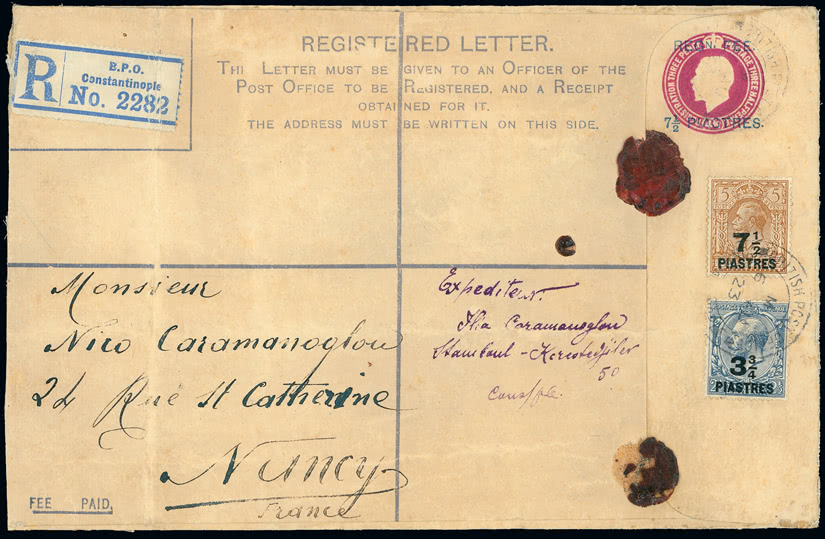 R
B.P.O.
Constantinople
No. 2282
REGISTERED LETTER.
THE LETTER MUST BE GIVEN TO AN OFFICER OF THE
POST OFFICE TO BE REGISTERED, AND A RECEIPT
OBTAINED FOR IT.
THE ADDRESS MUST BE WRITTEN ON THIS SIDE.
REGN. FEE.
7½ PIASTRES.
5 5
7½
PIASTRES
BRITISH POST
23
3¾
PIASTRES
Monsieur
Nico Caramanoglou
24 Rue St Catherine
Nancy
France
Expediteur.
Ilia Caramanoglou
Stamboul -
50
Constple.
FEE PAID.